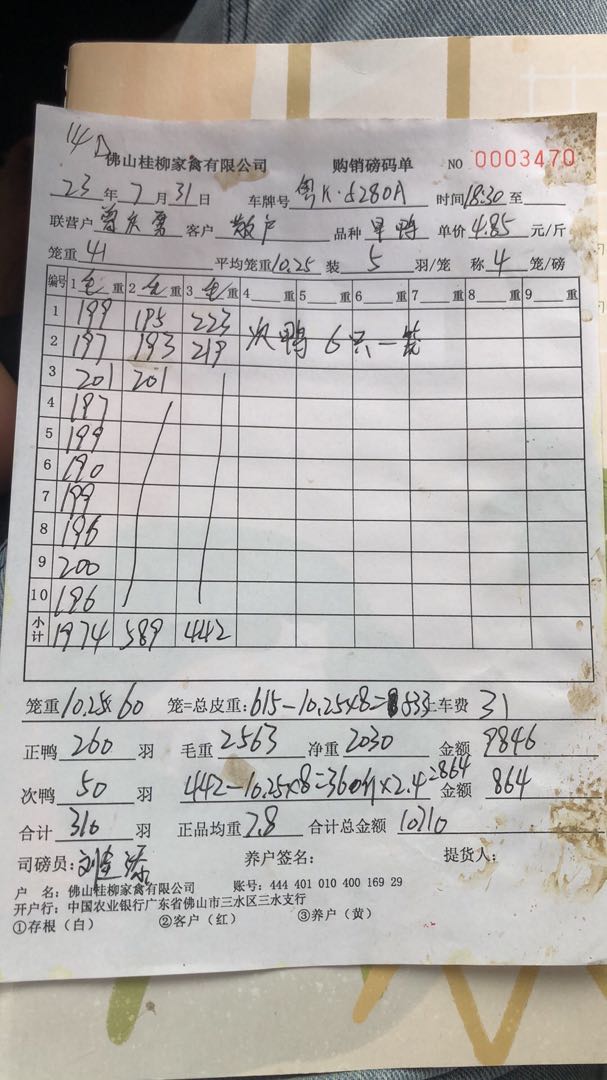 14D
佛山桂柳家禽有限公司 购销磅码单 NO 0003470
23 年 7 月 31 日 车牌号 粤K·6280A 时间 18:30 至
联营户 客户 散户 品种 旱鸭 单价 4.85 元/斤
笼重 41 平均笼重 10.25 装 5 羽/笼 称 4 笼/磅
编号 1 毛 重 2 毛 重 3 毛 重 4 重 5 重 6 重 7 重 8 重 9 重
1 199 195 223
2 197 193 219 次鸭 6只一笼
3 201 201
4 197
5 199
6 190
7 199
8 196
9 200
10 196
小计 1974 589 442
笼重 10.25x60 笼=总皮重: 615-10.25x8=533 上车费 31
正鸭 260 羽 毛重 2563 净重 2030 金额 9846
次鸭 50 羽 442-10.25x8=360斤x2.4 864 金额 864
合计 310 羽 正品均重 7.8 合计总金额 10710
司磅员: 养户签名: 提货人:
户 名: 佛山桂柳家禽有限公司 账号: 444 401 010 400 169 29
开户行: 中国农业银行广东省佛山市三水区三水支行
①存根（白） ②客户（红） ③养户（黄）